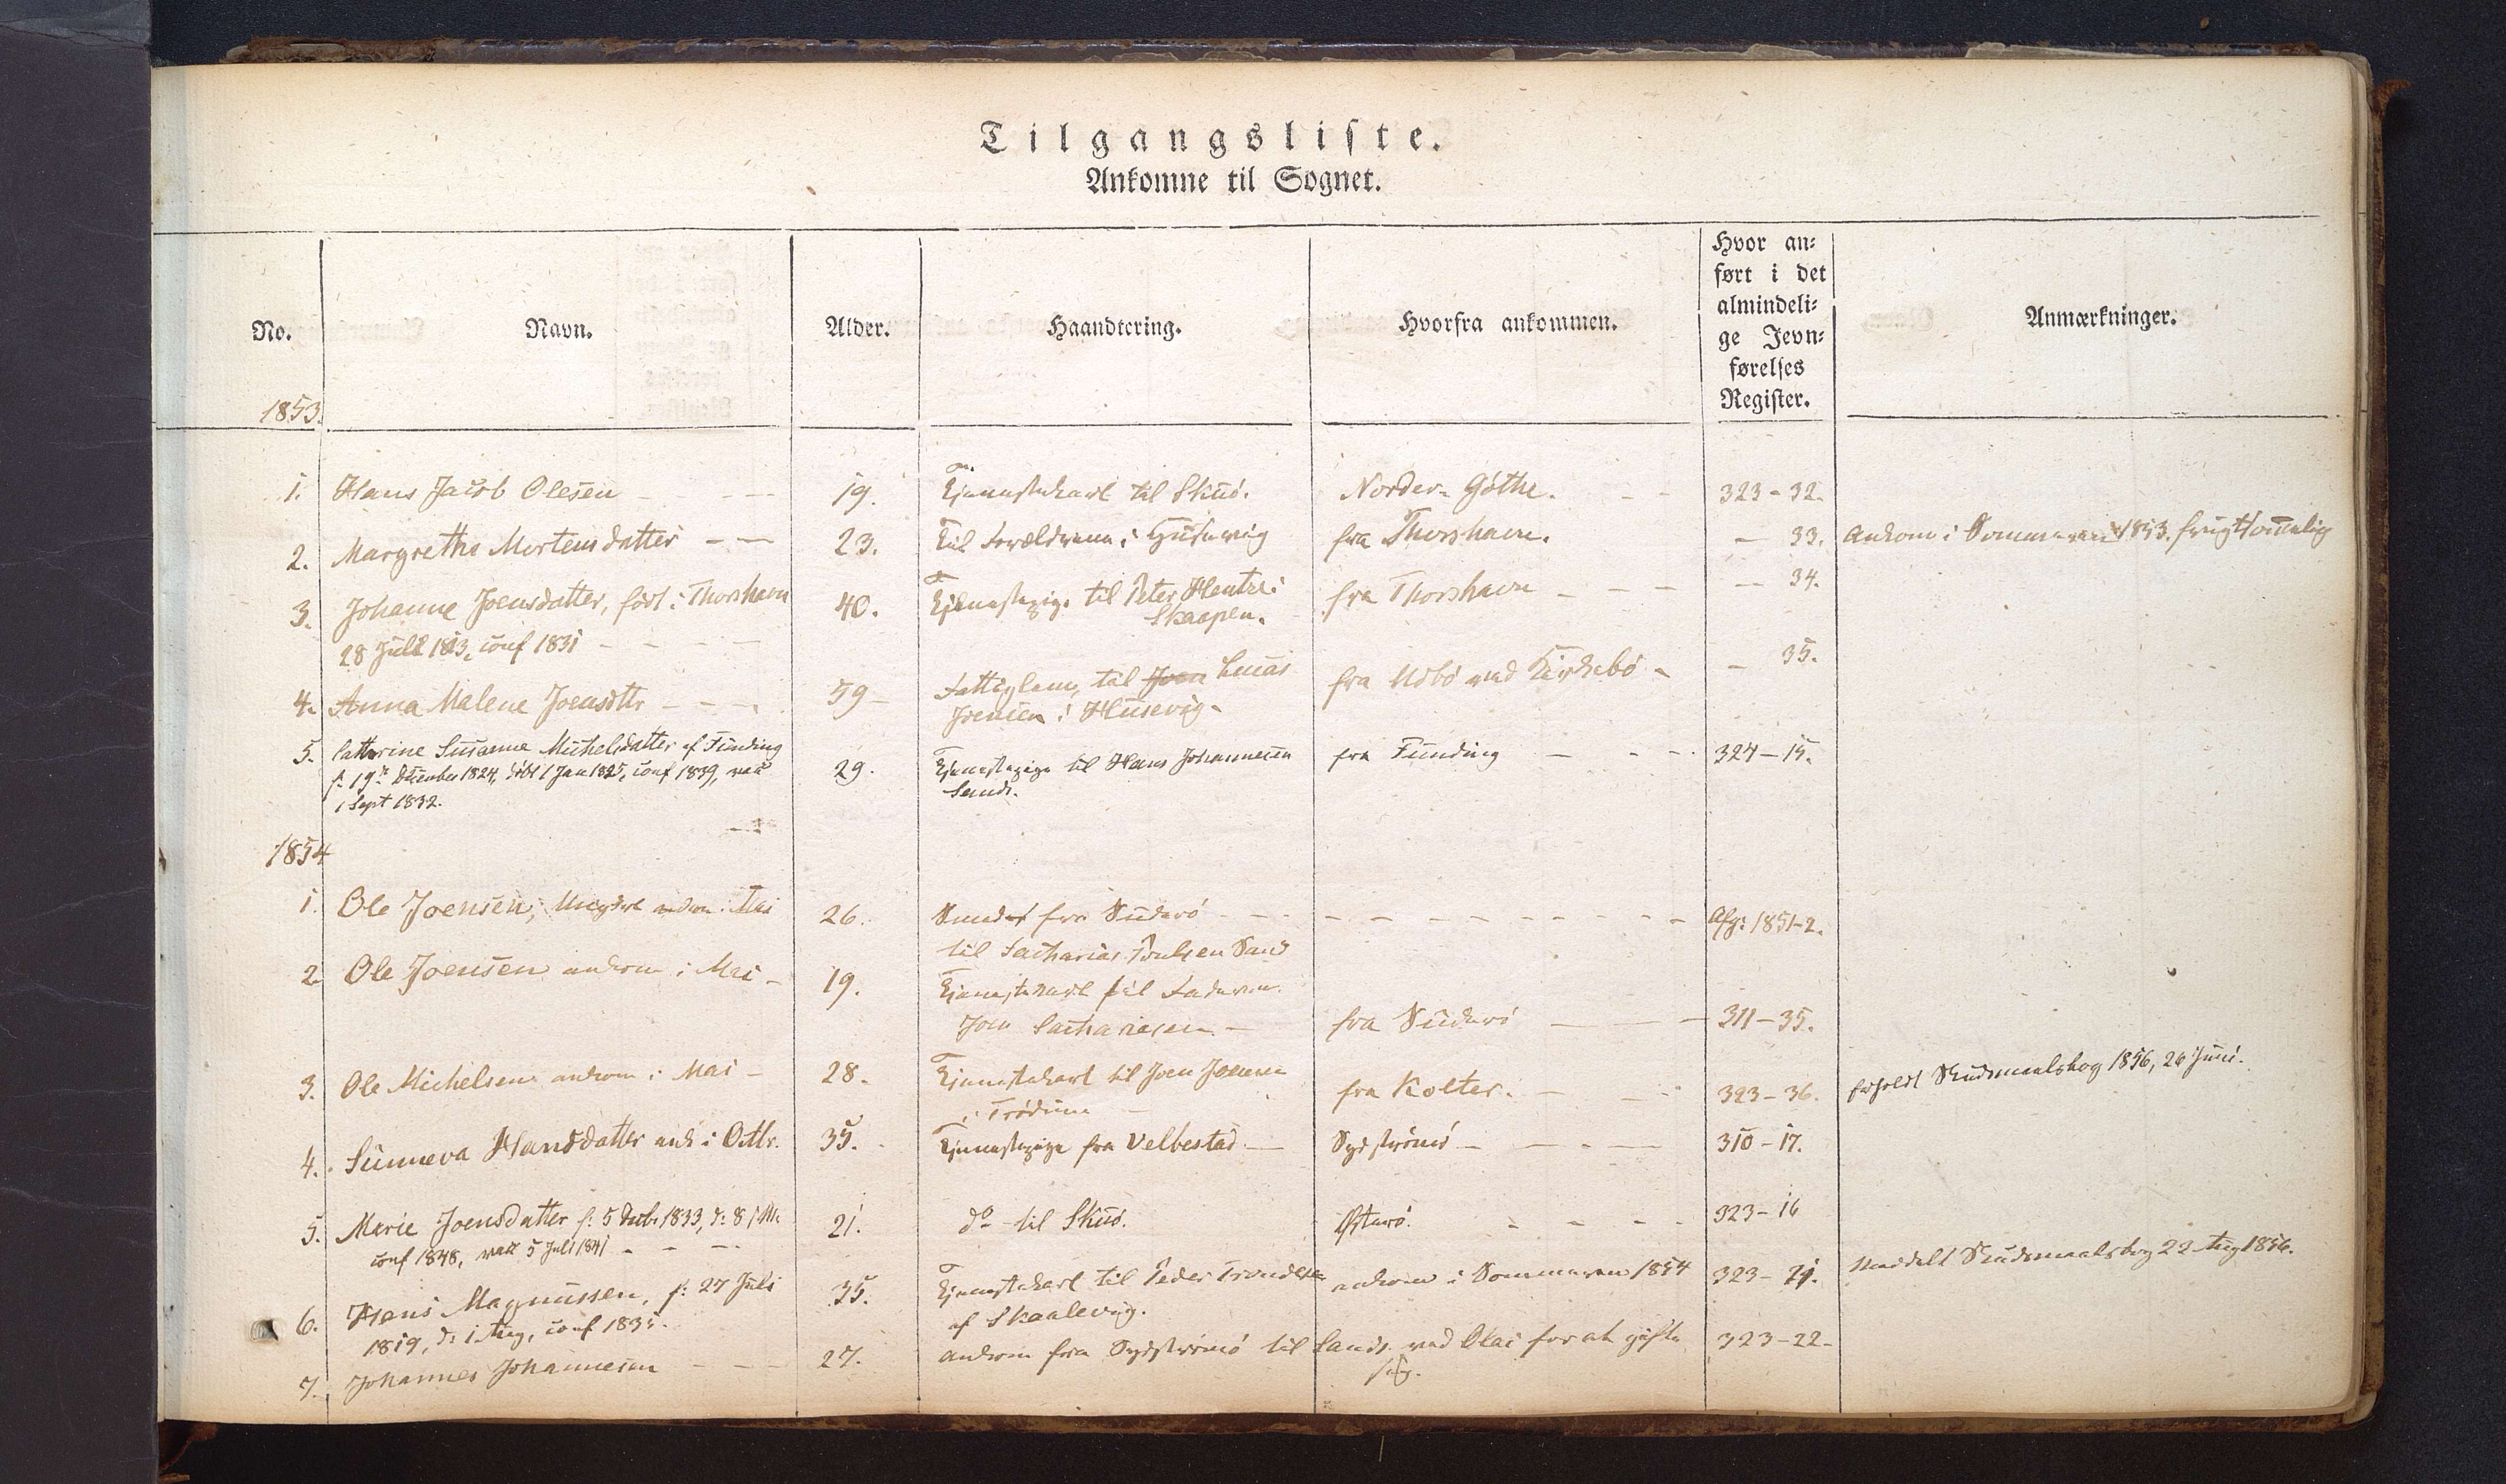 Tilgangsliste.
Ankomne til Sognet.
No.
Navn.
Alder.
Haandtering.
Hvorfra ankommen.
Hvor an-
ført i det
almindeli-
ge Jevn-
førelses
Register.
Anmærkninger.
1853.
1. Hans Jacob Olesen - - - 19. Tjenestekarl til Skuö. Norder-Göthe. - - 323-32.
2. Margrethe Mortensdatter - - 23. til Forældrene i Husevig fra Thorshavn. - 33. Ankom i Sommeren 1853.
3. Johanne Joensdatter, født i Thorshavn 40. Tjenestepige til Peter Hentze i fra Thorshavn - - - - 34.
28 Juli 1813, conf 1831 - - - Skaapen.
4. Anna Malene Joensdtr - - - 59 - Fattiglem, til Joen Lucas fra ved Kirkebö - - 35.
Joensen i Husevig.
5. Cathrine Susanne Michelsdatter af Funding 29. Tjenestepige til Hans Johannesen fra Funding - - - 324-15.
f. 19de December 1824, döbt 1 Jan 1825, conf 1839, vacc Sand.
1 Sept 1832.
1854
1. Ole Joensen, Ungkarl ankom i Mai 26. fra Suderö - - - Afg: 1851-2.
til Sacharias Poulsen Sand
2. Ole Joensen ankom i Mai - 19. Tjenestekarl til Faderen
Joen Sachariesen - fra Suderö - - - 311-35.
3. Ole Michelsen ankom i Mai - 28. Tjenestekarl til Joen Joensen fra Kolter. - - - 323-36. Skudsmaalsbog 1856, 26 Juni.
i Trödum -
4. Sunneva Hansdatter ank i Octbr. 35. Tjenestepige fra Velbestad - Sydströmö - - - 310-17.
5. Marie Joensdatter f: 5 Decb. 1833, d: 8 21. do til Skuö. Österö. - - - - 323-16
conf 1848, vacc 5 Juli 1841 - - -
6. Hans Magnussen, f: 27 Juli 35. Tjenestekarl til Peder Trondesen ankom i Sommeren 1854 323-21. Meddelt Skudsmaalsbog 22 Aug 1856.
1819, d: 1 Aug, conf 1835. af Skaalevig.
7. Johannes Johannesen - - - 27. ankom fra Sydströmö til Sand ved Olai for at gifte 323-22-
sig.